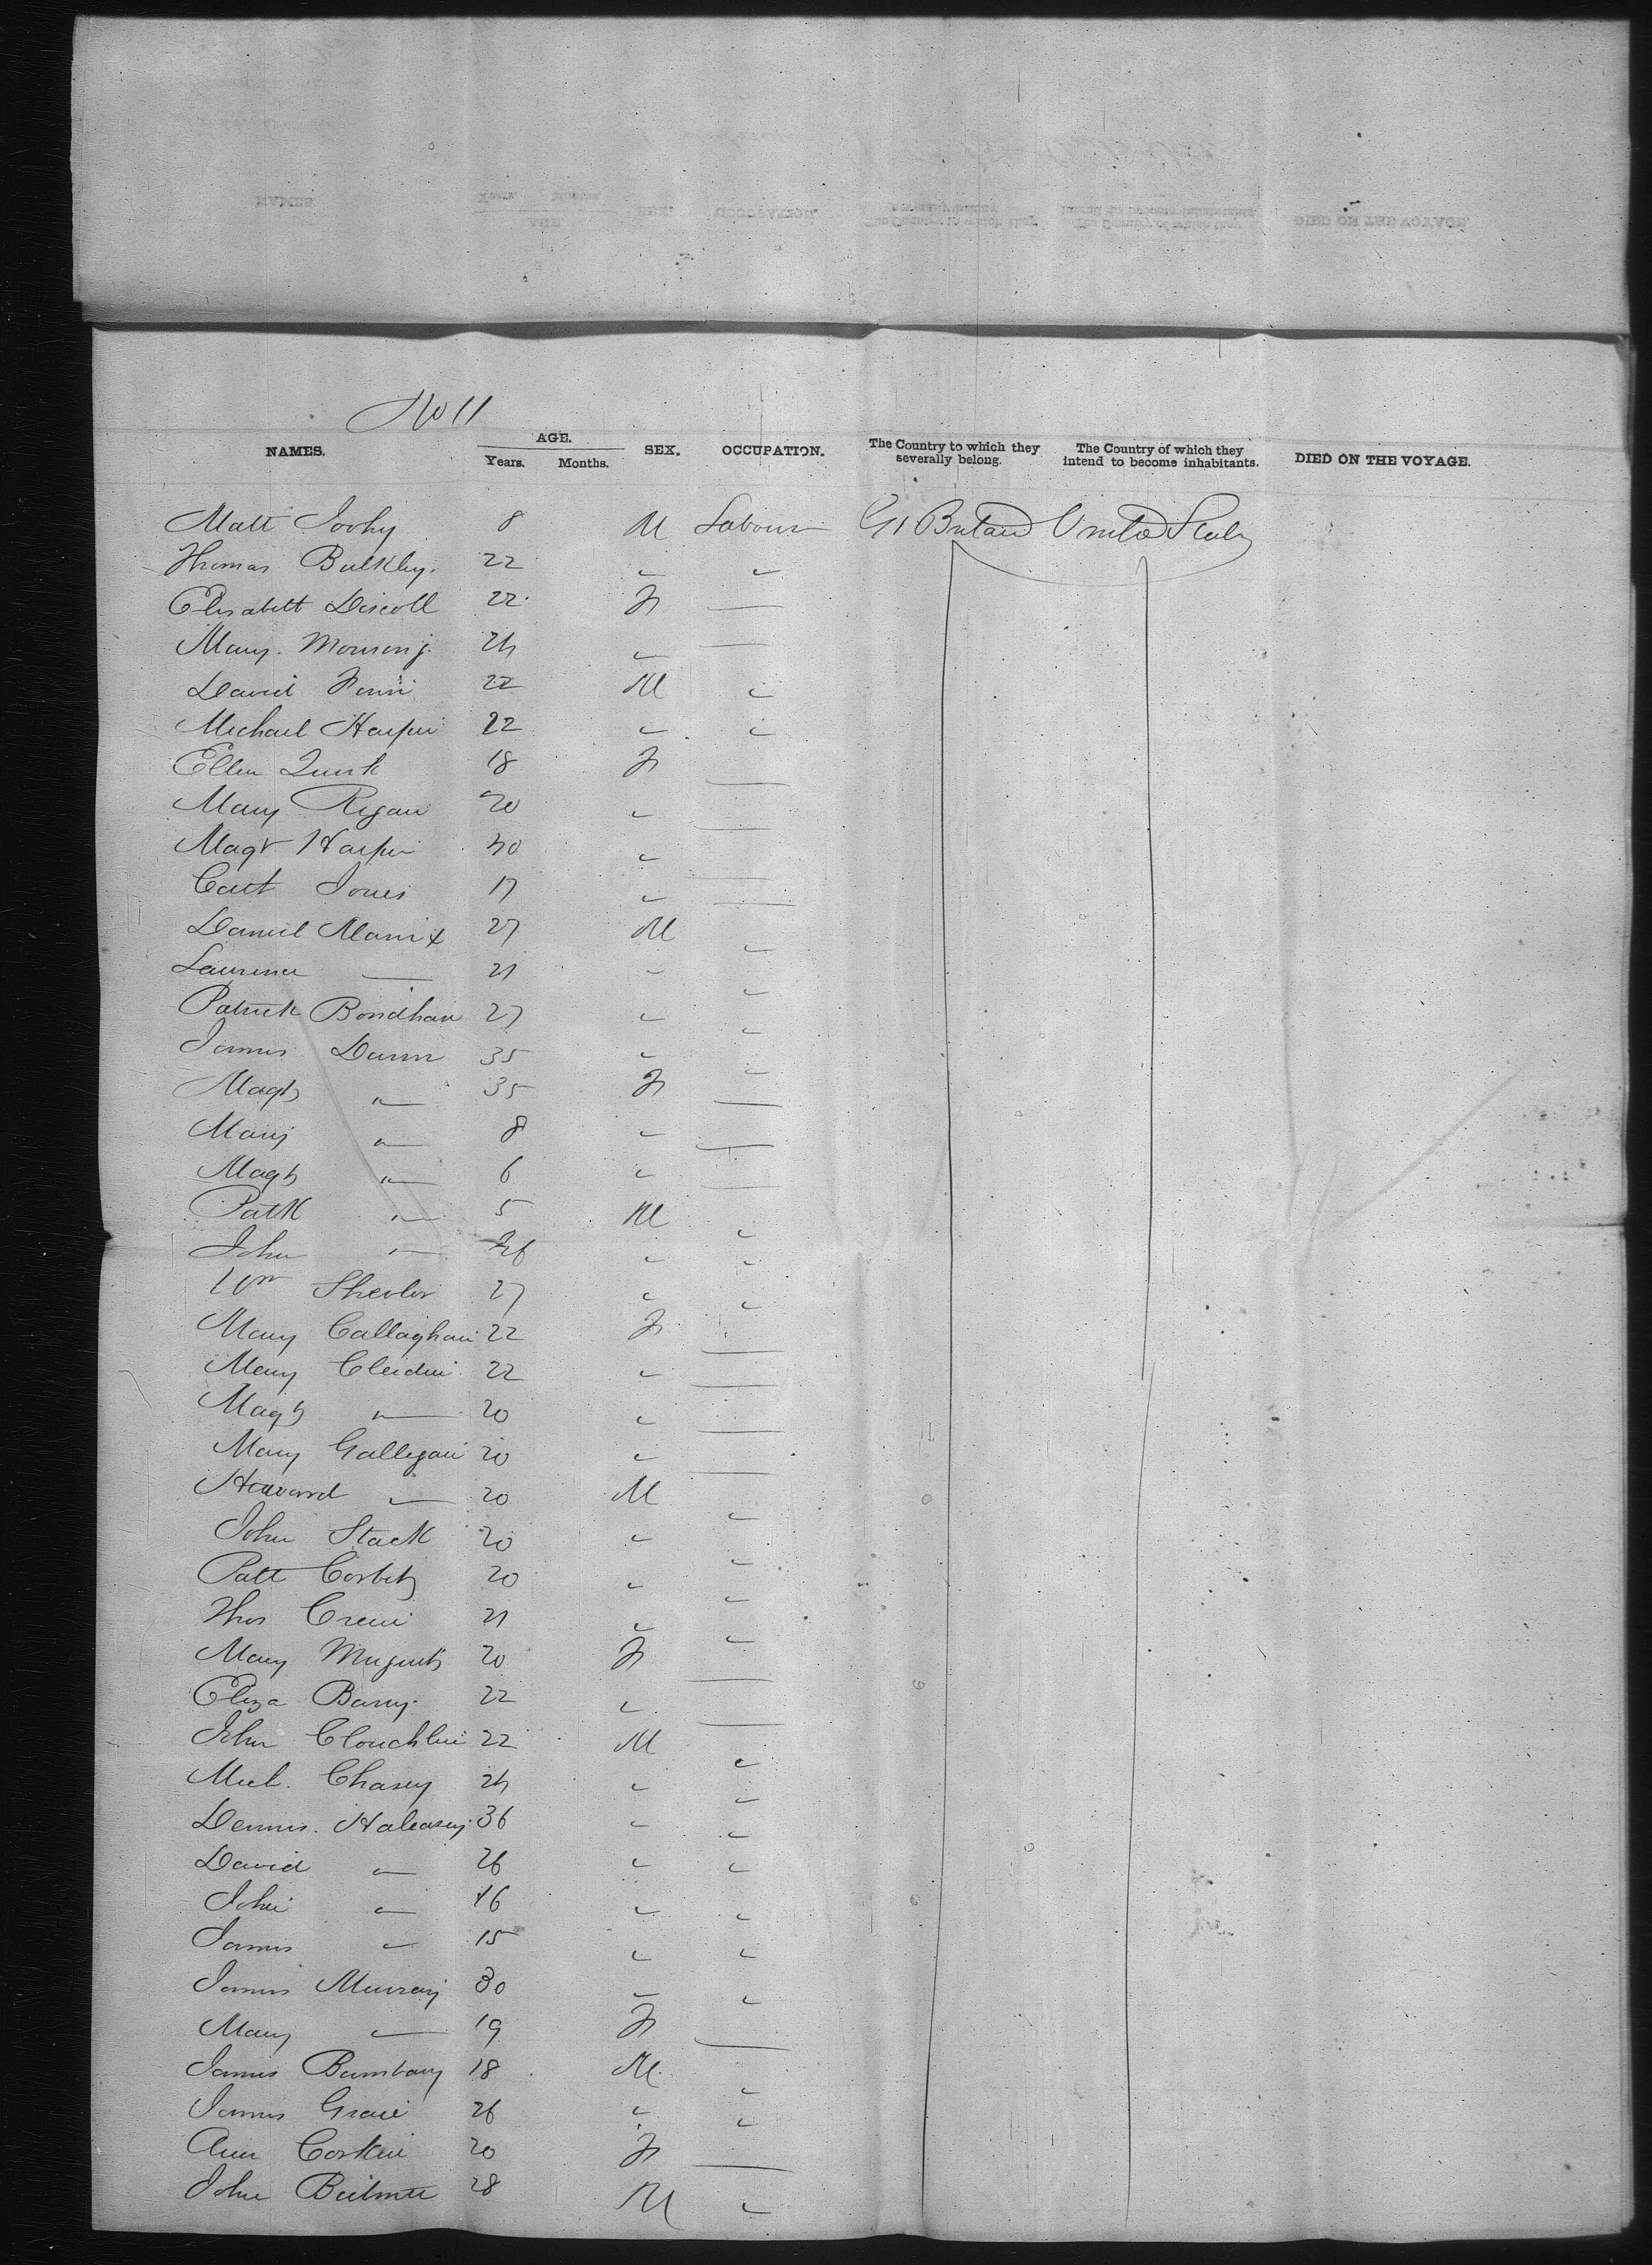 No 11
NAMES. AGE. Years. Months. SEX. OCCUPATION. The Country to which they severally belong. The Country of which they intend to become inhabitants. DIED ON THE VOYAGE.
Matt 8 M Labour Gt Britain United States
Thomas Bulkley. 22 " "
Elisabett Discoll 22 F —
Mary 24 " —
David 22 M "
Michael Harper 22 " "
Ellen Quirk 18 F —
Mary Regan 20 " —
Magt Harper 30 " —
Cart Jones 17 " —
Daniel Manix 27 M "
Laurence — 21 " "
Patrick Bondhan 27 " "
James Dunn 35 " "
Magt " 35 F —
Mary " 8 " —
Magt " 6 " —
Patk " 5 M "
John " 26 " "
Wm 27 " "
Mary Callaghan 22 F —
Mary 22 " —
Magt " 20 " —
Mary Gallegan 20 " —
" 20 M "
John Stack 20 " "
Patt Corbit 20 " "
Thos 21 " "
Mary 20 F —
Eliza Barry 22 " —
John 22 M "
Micl. Chasey 24 " "
Dennis. Haleasey 36 " "
David " 26 " "
John " 16 " "
James " 15 " "
James Murray 30 " "
Mary " 19 F —
James Bambary 18 M "
James 26 " "
Ann Corkin 20 F —
John 28 M "